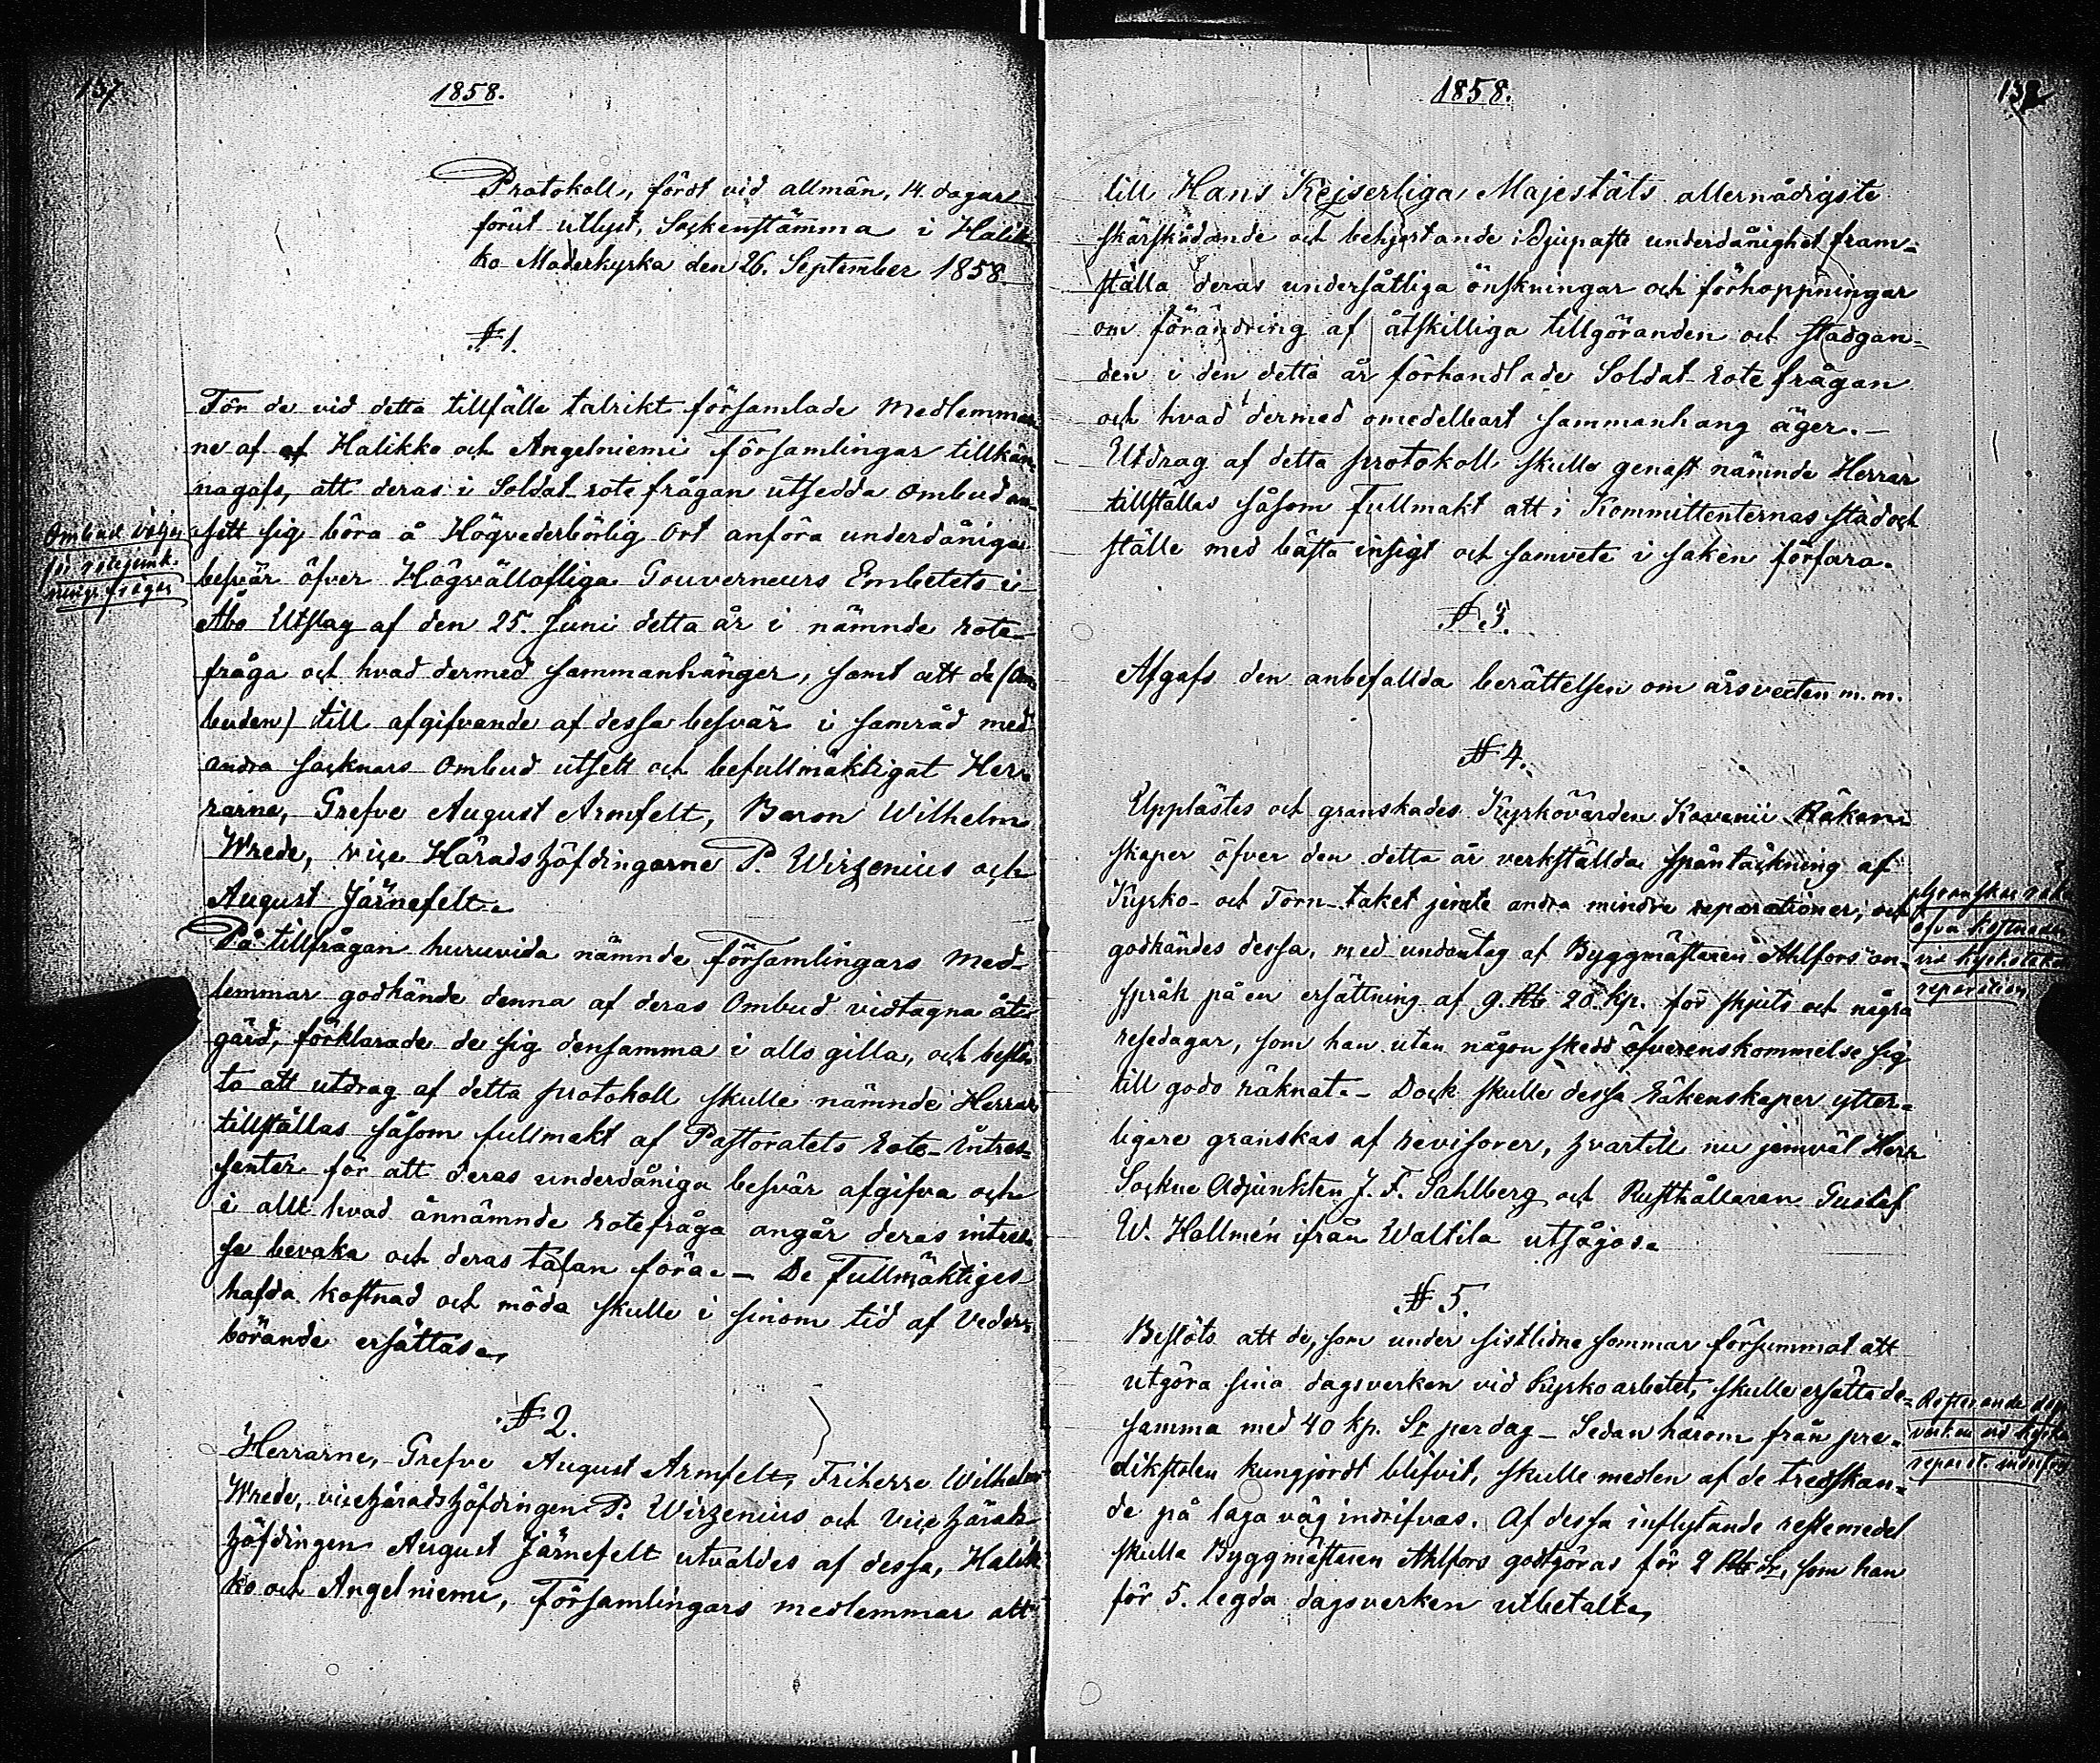 137
1858.
Protokoll, fördt vid allmän, 14. dagar
förut utlyst, Sockenstämma i Halik-
ko Moderkyrka den 26. September 1858.
§ 1.
För de vid detta tillfälle talrikt församlade Medlemmar
ne af af Halikko och Angelniemi Församlingar tillkän-
nagafs, att deras i Soldat-rote frågan utsedda ombud an-
sett sig böra å Högvederbörlig Ort anföra underdåniga
besvär öfver Högvällofliga Gouverneurs Embetets i
Åbo Utslag af den 25. Juni detta år i nämnde rote-
fråga och hvad dermed sammanhänger, samt att de (Om
buden) till afgifvande af dessa besvär i samråd med
andra socknars Ombud utsett och befullmäktigat Her-
rarne, Grefve August Armfelt, Baron Wilhelm
Wrede, vice Häradshöfdingarne P. Wirzenius och
August Järnefelt.
Ombud väljes
för rotejemk-
nings frågan
På tillfrågan huruvida nämnde Församlingars Med-
lemmar godkände denna af deras Ombud vidtagna åt-
gärd, förklarade de sig densamma i allo gilla, och beslu-
to att utdrag af detta protokoll skulle nämnde Herrar
tillställas såsom fullmakt af Pastoratets Rote-Intres-
senter för att deras underdåniga besvär afgifva och
i allt hvad ännämnde rotefråga angår deras intres-
se bevaka och deras talan föra. – De Fullmäktiges
hafda kostnad och möda skulle i sinom tid af Veder-
börande ersättas.
§ 2.
Herrarne, Grefve August Armfelt, Friherre Wilhelm
Wrede, vicehäradshöfdingen P. Wirzenius och vice härads
höfdingen August Järnefelt utvaldes af dessa, Halik
ko och Angelniemi, Församlingars medlemmar att
1858.
138
till Hans Kejserliga Majestäts allernådigste
skärskådande och behjertande i djupaste underdånighet fram-
ställa deras undersåtliga önskningar och förhoppningar
om förändring af åtskilliga tillgöranden och stadgan-
den i den detta år förhandlade Soldat-rote frågan
och hvad dermed omedelbart sammanhang äger. –
Utdrag af detta protokoll skulle genast nämnde Herrar
tillställas såsom Fullmakt att i Kommittenternas stad och
ställe med bästa insigt och samvete i saken förfara.
§ 3.
Afgafs den anbefallda berättelsen om årsvexten m. m.
§ 4.
Upplästes och granskades Kyrkovärden Kavenii Räken-
skaper öfver den detta år verkställda spåntäckning af
Kyrko- och Torn-taket jemte andra mindre reparationer; och
godkändes dessa, med undantag af Byggmästaren Ahlfors' an-
språk på en ersättning af 9. Rb 20. kp. för skjuts och några
resedagar, som han utan någon skedd öfverenskommelse sig
till godo räknat. – Dock skulle dessa Räkenskaper ytter-
ligare granskas af revisorer, hvartill nu jemväl Herr
Sockne Adjunkten J. F. Sahlberg och Rusthållaren Gustaf
W. Hallmén ifrån Waltila utsågos.
Granskas räk.
öfver kostnaden
vid kyrkotakets
reparation
§ 5.
Beslöts att de, som under sistlidne sommar försummat att
utgöra sina dagsverken vid Kyrkoarbetet, skulle ersätta de-
samma med 40 kp. Sr per dag – Sedan härom från pre-
dikstolen kungjordt blifvit, skulle medlen af de tredskan-
de på laga väg indrifvas. Af dessa inflytande restemedel
skulle Byggmästaren Ahlfors godtgöras för 2 Rb Sr, som han
för 5. legda dagsverken utbetalt.
Resterande dags
verken vid kyrko